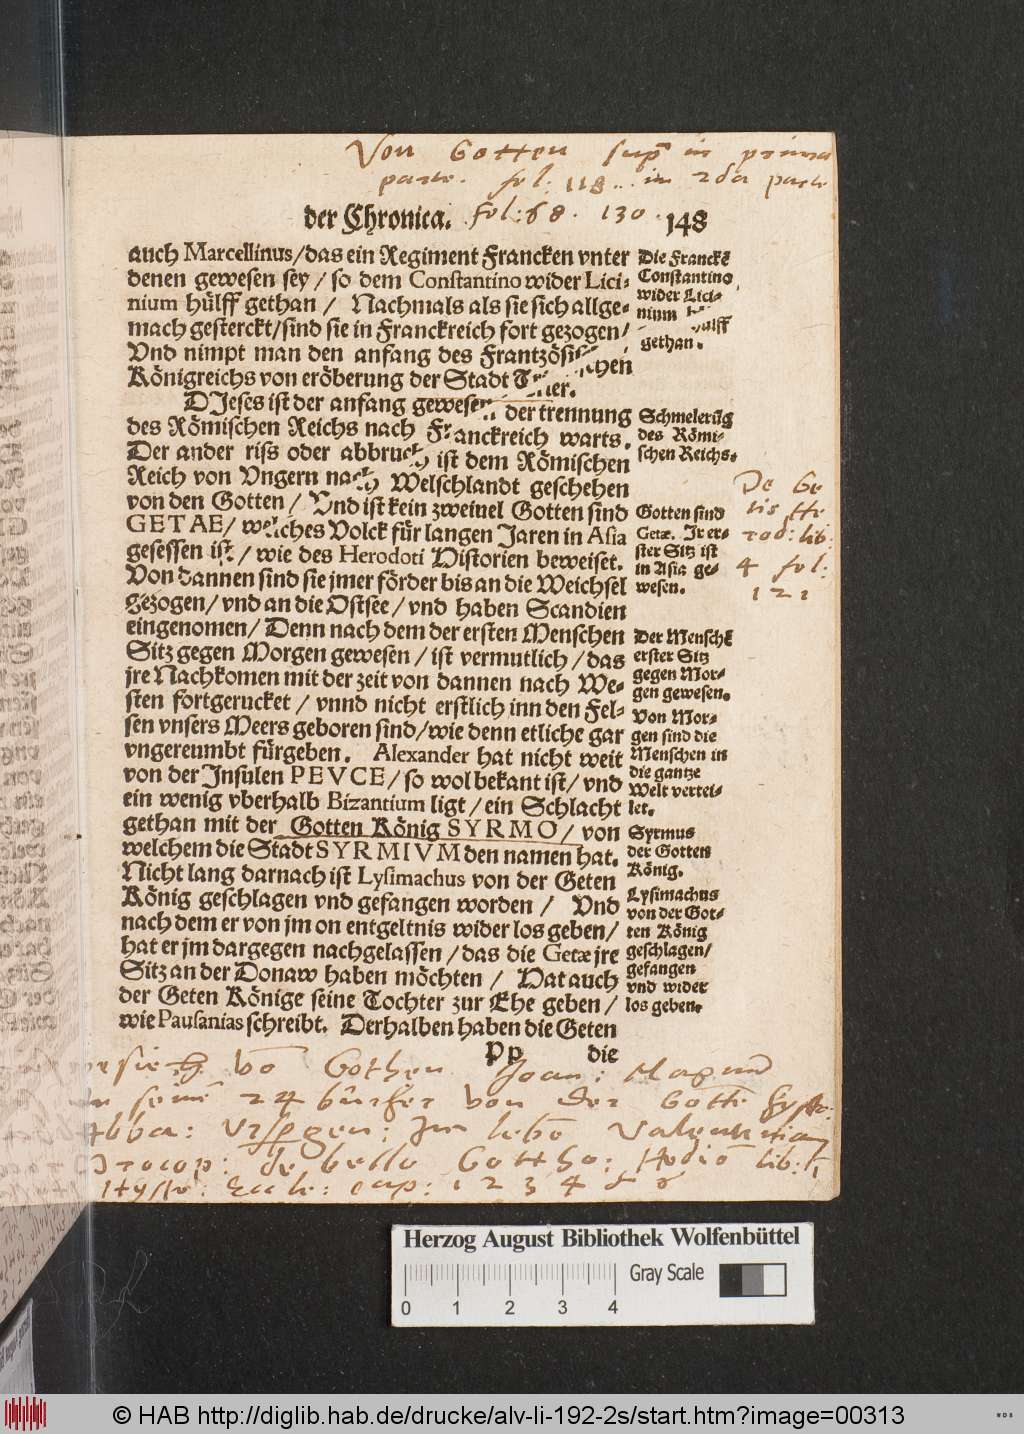 Von Gotten sup in prima
parte. fol: 118 .. in 2da parte
fol: 68 . 130 .
der Chronica.
148
auch Marcellinus/das ein Regiment Francken vnter
denen gewesen sey / so dem Constantino wider Lici⸗
nium hülff gethan / Nachmals als sie sich allge⸗
mach gesterckt/sind sie in Franckreich fort gezogen/
Vnd nimpt man den anfang des Frantzösischen
Königreichs von eröberung der Stadt Trier.
DJeses ist der anfang gewesen der trennung
des Römischen Reichs nach Franckreich warts.
Der ander riss oder abbruch ist dem Römischen
Reich von Vngern nach Welschlandt geschehen
von den Gotten / Vnd ist kein zweiuel Gotten sind
GETAE/ welches Volck für langen Jaren in Asia
gesessen ist / wie des Herodoti Historien beweiset.
Von dannen sind sie jmer förder bis an die Weichsel
gezogen/ vnd an die Ostsee / vnd haben Scandien
eingenomen/ Denn nach dem der ersten Menschen
Sitz gegen Morgen gewesen / ist vermutlich / das
jre Nachkomen mit der zeit von dannen nach We⸗
sten fortgerucket / vnnd nicht erstlich inn den Fel⸗
sen vnsers Meers geboren sind/wie denn etliche gar
vngereumbt fürgeben. Alexander hat nicht weit
von der Jnsulen PEVCE/ so wol bekant ist/ vnd
ein wenig vberhalb Bizantium ligt / ein Schlacht
gethan mit der Gotten König SYRMO/ von
welchem die Stadt SYRMIVM den namen hat.
Nicht lang darnach ist Lysimachus von der Geten
König geschlagen vnd gefangen worden / Vnd
nach dem er von jm on entgeltnis wider los geben/
hat er jm dargegen nachgelassen / das die Getæ jre
Sitz an der Donaw haben möchten / Hat auch
der Geten Könige seine Tochter zur Ehe geben /
wie Pausanias schreibt. Derhalben haben die Geten
Pp
die
Die Franckē
Constantino
wider Lici⸗
nium
hülff
gethan.
Schmelerūg
des Römi⸗
schen Reichs.
Gotten sind
Getæ. Jr er⸗
ster Sitz ist
in Asia ge⸗
wesen.
Der Menschē
erster Sitz
gegen Mor⸗
gen gewesen.
Von Mor⸗
gen sind die
Menschen in
die gantze
Welt vertei⸗
let.
Syrmus
der Gotten
König.
Lysimachus
von der Got⸗
ten König
geschlagen/
gefangen
vnd wider
los geben.
De Ge
tis He
rod: lib:
4 fol:
121
vō Gothen Joan: Magnū
24 bücher von der Gottē
Vrspergen: Jm lebē Valentinian
Procop: de bello Gottho: Hedio lib:
Hysto: Eccle: cap: 1 2 3 4 5 6
Herzog August Bibliothek Wolfenbüttel
Gray Scale
0 1 2 3 4
© HAB http://diglib.hab.de/drucke/alv-li-192-2s/start.htm?image=00313